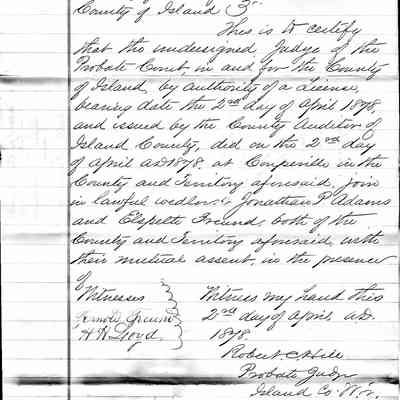 County of Island
This is to certify
that the undersigned Judge of the
Probate Court, in and for the County
of Island, by authority of a License,
bearing date the 2nd day of April 1878
and issued by the County Auditor of
Island County, did on the 2nd day
of April AD 1878. at Coupeville in the
County and Territory aforesaid, join
in lawful wedlock Jonathan P Adams
and Elspette Freund, both of the
County and Territory aforesaid, with
their mutual assent, in the presence
of
Witnesses
Freund
H H Lloyd.
Witness my hand this
2nd day of April AD.
1878.
Robert C Hill
Probate Judge
Island Co. W.T.